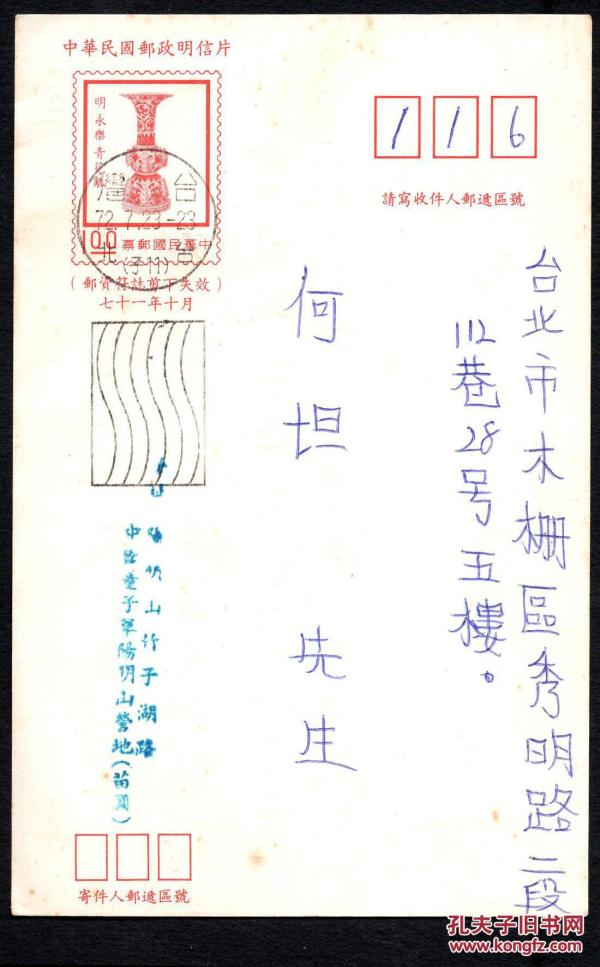 中華民國郵政明信片
明永樂青花觚
灣 台
72.7.23-23
北 台
(子11)
100
中華民國郵票
(郵資符誌剪下失效)
七十一年十月
116
請寫收件人郵遞區號
台北市木柵區秀明路二段
112巷28号五樓。
何坦 先生
陽明山竹子湖路
中國童子軍陽明山營地(苗圃)
寄件人郵遞區號
孔夫子旧书网
www.kongfz.com